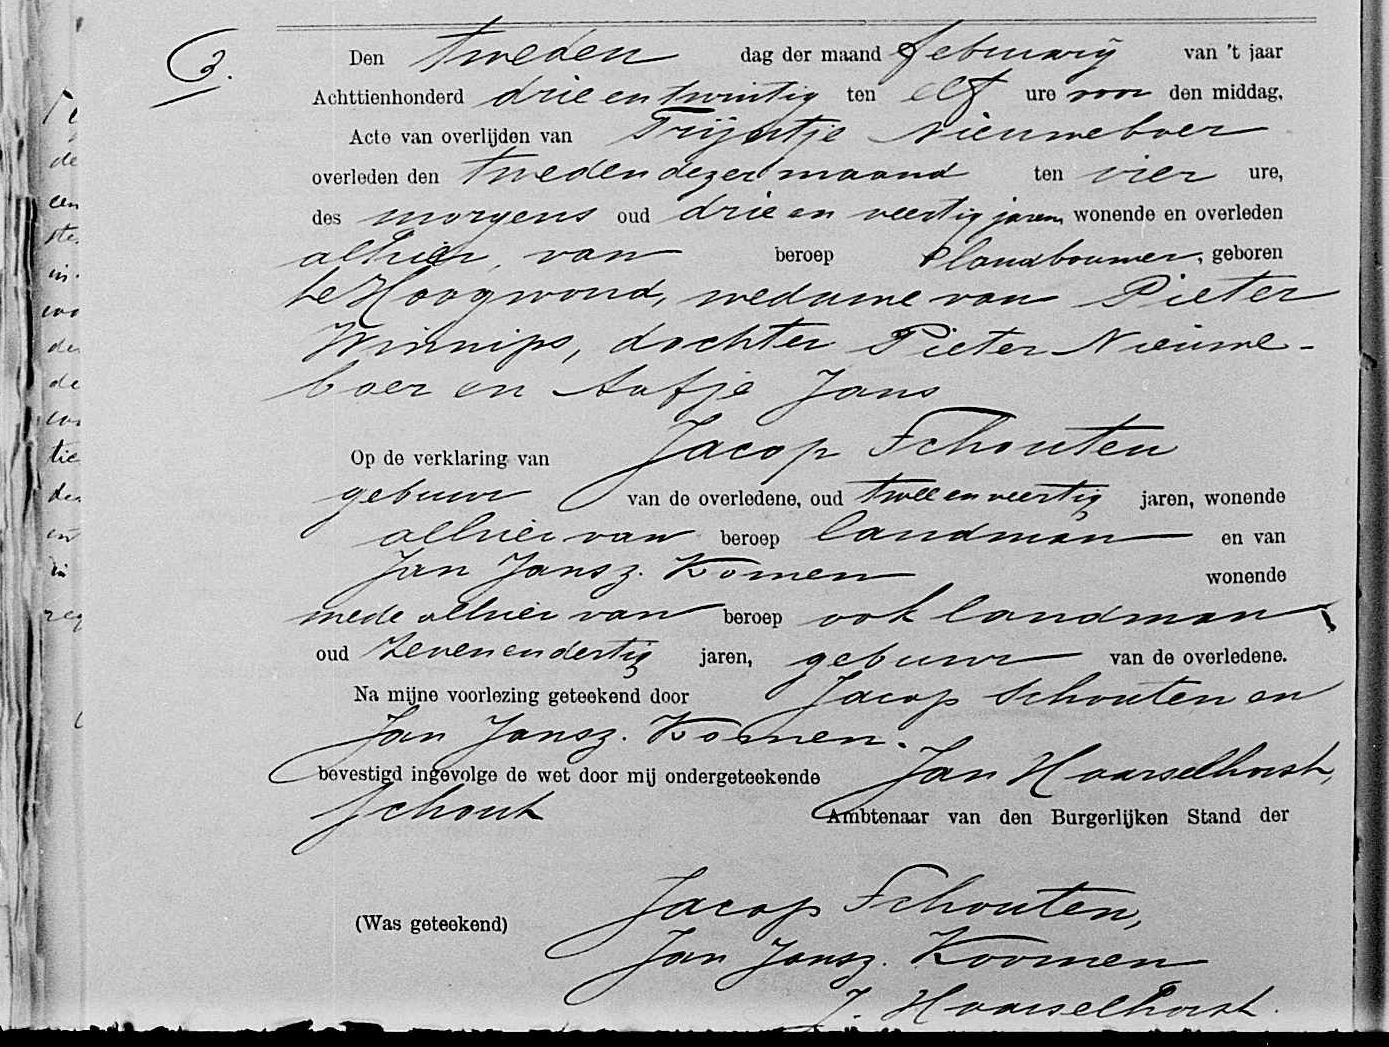 3.
Den tweeden dag der maand february van 't jaar
Achttienhonderd drie en twintig ten elf ure voor den middag,
Acte van overlijden van Trijntje Nieuweboer
overleden den tweeden dezer maand ten vier ure,
des morgens oud drie en veertig jaren, wonende en overleden
alhier, van beroep landbouwer, geboren
te Hoogwoud, weduwe van Pieter
Winnips, dochter Pieter Nieuwe-
boer en Aafje Jans
Op de verklaring van Jacop Schouten
gebuur van de overledene, oud twee en veertig jaren, wonende
alhier van beroep landman en van
Jan Jansz. Komen wonende
mede alhier van beroep ook landman
oud zeven en dertig jaren, gebuur van de overledene.
Na mijne voorlezing geteekend door Jacop Schouten en
Jan Jansz. Komen.
bevestigd ingevolge de wet door mij ondergeteekende Jan Haarselhorst,
Schout Ambtenaar van den Burgerlijken Stand der
(Was geteekend) Jacop Schouten,
Jan Jansz. Koomen
J. Haarselhorst.